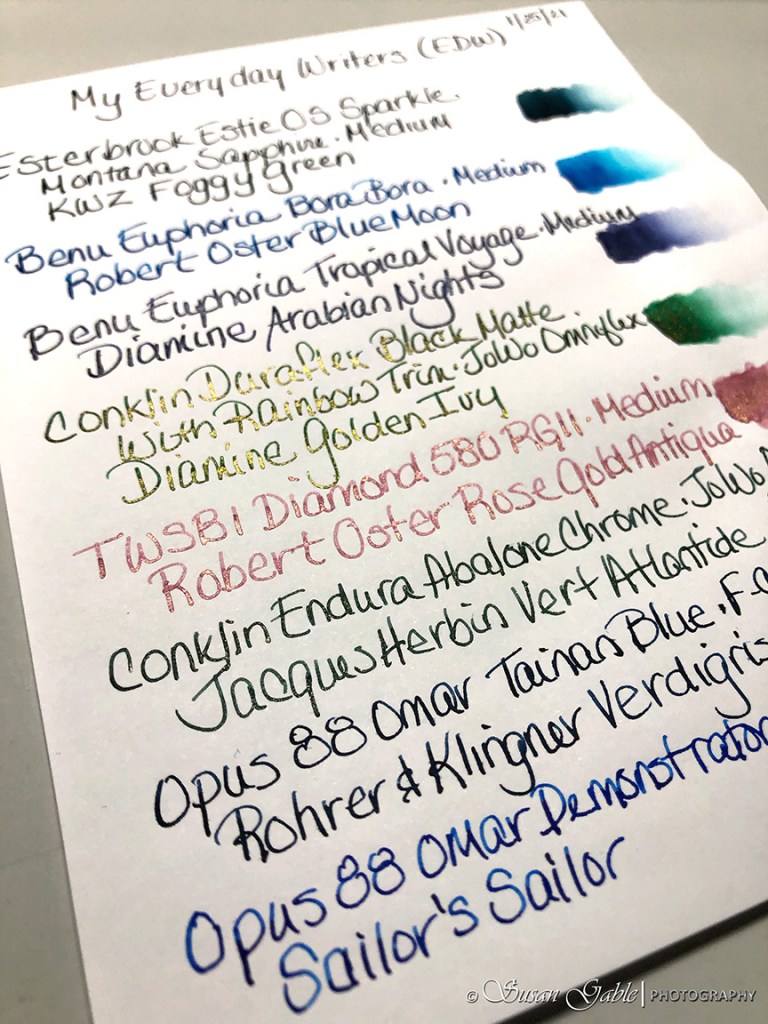 My Everyday Writers (EDW) 1/25/21
Esterbrook Estie OS Sparkle
Montana Sapphire · Medium
KWZ Foggy Green
Benu Euphoria Bora Bora · Medium
Robert Oster Blue Moon
Benu Euphoria Tropical Voyage · Medium
Diamine Arabian Nights
Conklin Duraflex Black Matte
With Rainbow Trim · JoWo Omniflex
Diamine Golden Ivy
TWSBI Diamond 580 RGII · Medium
Robert Oster Rose Gold Antiqua
Conklin Endura Abalone Chrome · JoWo
Jacques Herbin Vert Atlantide
Opus 88 Omar Tainan Blue · F-C
Rohrer & Klingner Verdigris
Opus 88 Omar Demonstrator
Sailor's Sailor
© Susan Gable | PHOTOGRAPHY